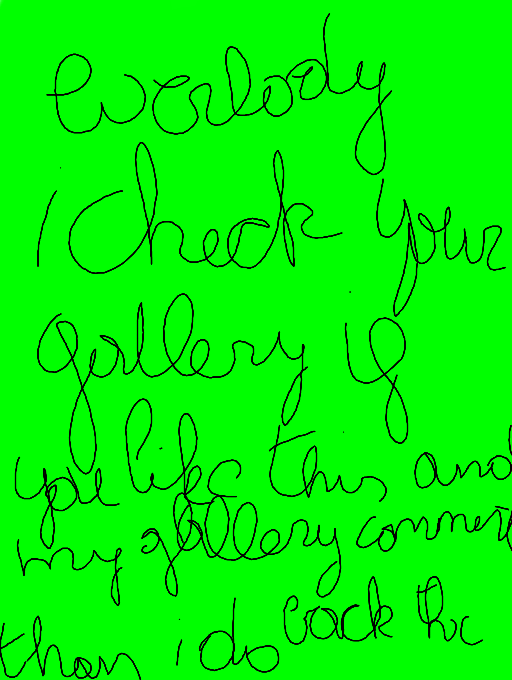 Evorbody
i check your
gallery if
you like this and
my gallery comment
than i do back the